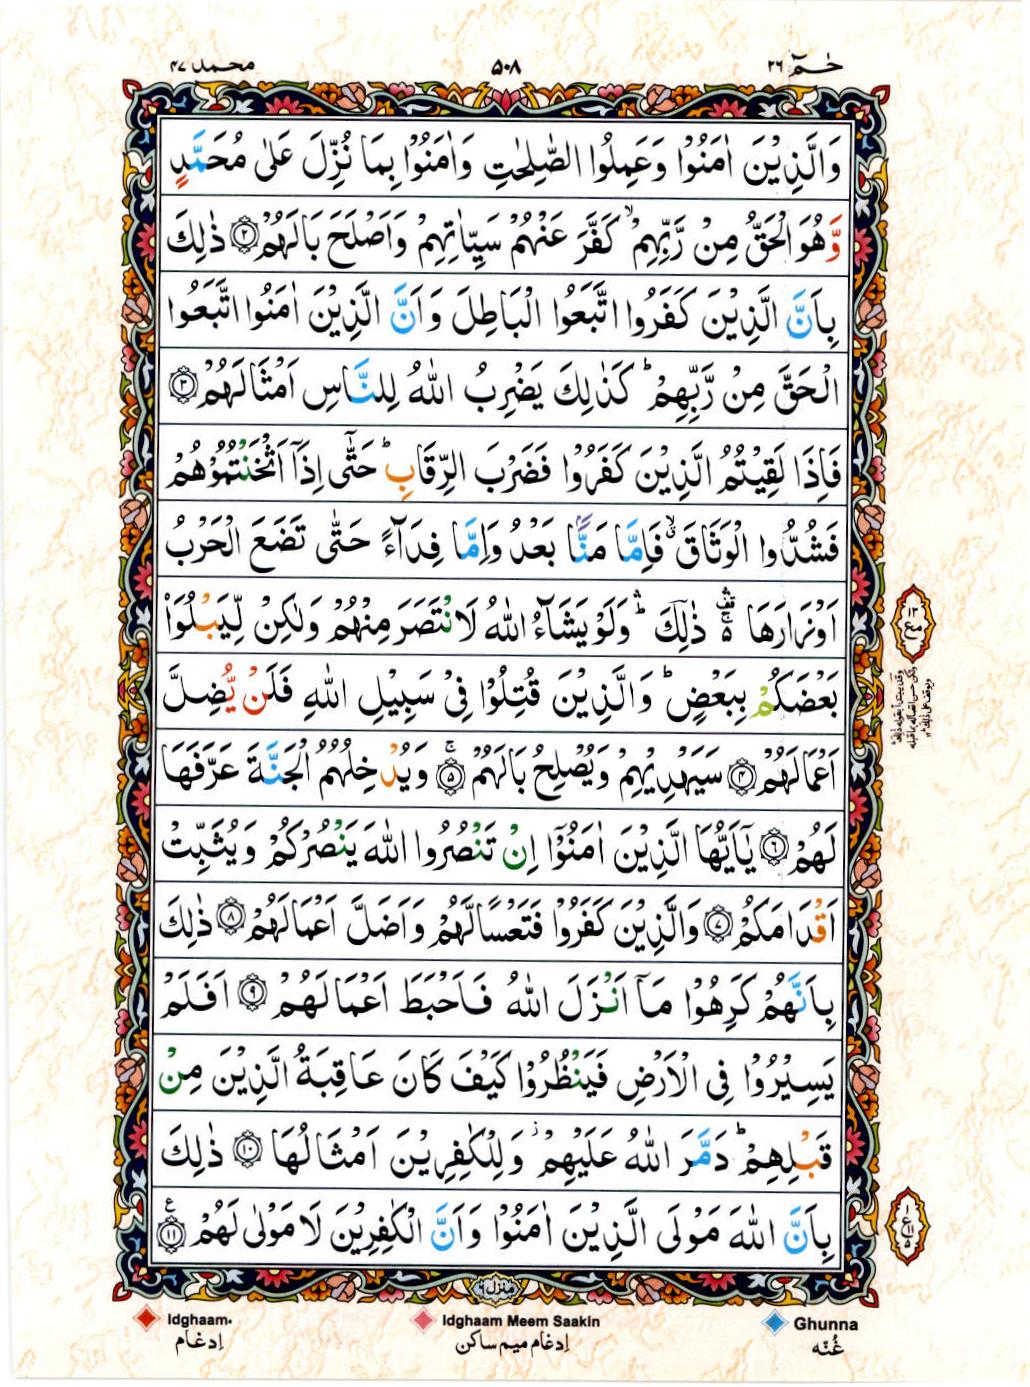 حٰمٓ ٢٦
٥٠٨
محمد ٤٧
وَالَّذِيْنَ اٰمَنُوْا وَعَمِلُوا الصّٰلِحٰتِ وَاٰمَنُوْا بِمَا نُزِّلَ عَلٰى مُحَمَّدٍ
وَّهُوَ الْحَقُّ مِنْ رَّبِّهِمْ ۙ كَفَّرَ عَنْهُمْ سَيِّاٰتِهِمْ وَاَصْلَحَ بَالَهُمْ ﴿٢﴾ ذٰلِكَ
بِاَنَّ الَّذِيْنَ كَفَرُوا اتَّبَعُوا الْبَاطِلَ وَاَنَّ الَّذِيْنَ اٰمَنُوا اتَّبَعُوا
الْحَقَّ مِنْ رَّبِّهِمْ ؕ كَذٰلِكَ يَضْرِبُ اللّٰهُ لِلنَّاسِ اَمْثَالَهُمْ ﴿٣﴾
فَاِذَا لَقِيْتُمُ الَّذِيْنَ كَفَرُوْا فَضَرْبَ الرِّقَابِ ؕ حَتّٰٓى اِذَآ اَثْخَنْتُمُوْهُمْ
فَشُدُّوا الْوَثَاقَ ۙ فَاِمَّا مَنًّۢا بَعْدُ وَاِمَّا فِدَآءً حَتّٰى تَضَعَ الْحَرْبُ
اَوْزَارَهَا ۛ۫ ذٰلِكَ ۛؕ وَلَوْ يَشَآءُ اللّٰهُ لَانْتَصَرَ مِنْهُمْ وَلٰكِنْ لِّيَبْلُوَا۟
بَعْضَكُمْ بِبَعْضٍ ؕ وَالَّذِيْنَ قُتِلُوْا فِيْ سَبِيْلِ اللّٰهِ فَلَنْ يُّضِلَّ
اَعْمَالَهُمْ ﴿٤﴾ سَيَهْدِيْهِمْ وَيُصْلِحُ بَالَهُمْ ۚ ﴿٥﴾ وَيُدْخِلُهُمُ الْجَنَّةَ عَرَّفَهَا
لَهُمْ ﴿٦﴾ يٰٓاَيُّهَا الَّذِيْنَ اٰمَنُوْٓا اِنْ تَنْصُرُوا اللّٰهَ يَنْصُرْكُمْ وَيُثَبِّتْ
اَقْدَامَكُمْ ﴿٧﴾ وَالَّذِيْنَ كَفَرُوْا فَتَعْسًا لَّهُمْ وَاَضَلَّ اَعْمَالَهُمْ ﴿٨﴾ ذٰلِكَ
بِاَنَّهُمْ كَرِهُوْا مَآ اَنْزَلَ اللّٰهُ فَاَحْبَطَ اَعْمَالَهُمْ ﴿٩﴾ اَفَلَمْ
يَسِيْرُوْا فِي الْاَرْضِ فَيَنْظُرُوْا كَيْفَ كَانَ عَاقِبَةُ الَّذِيْنَ مِنْ
قَبْلِهِمْ ؕ دَمَّرَ اللّٰهُ عَلَيْهِمْ ۡ وَلِلْكٰفِرِيْنَ اَمْثَالُهَا ﴿١٠﴾ ذٰلِكَ
بِاَنَّ اللّٰهَ مَوْلَى الَّذِيْنَ اٰمَنُوْا وَاَنَّ الْكٰفِرِيْنَ لَا مَوْلٰى لَهُمْ ﴿١١﴾ ع
Ghunna
غُنّه
Idghaam Meem Saakin
إدغام ميم ساكن
Idghaam
إدغام